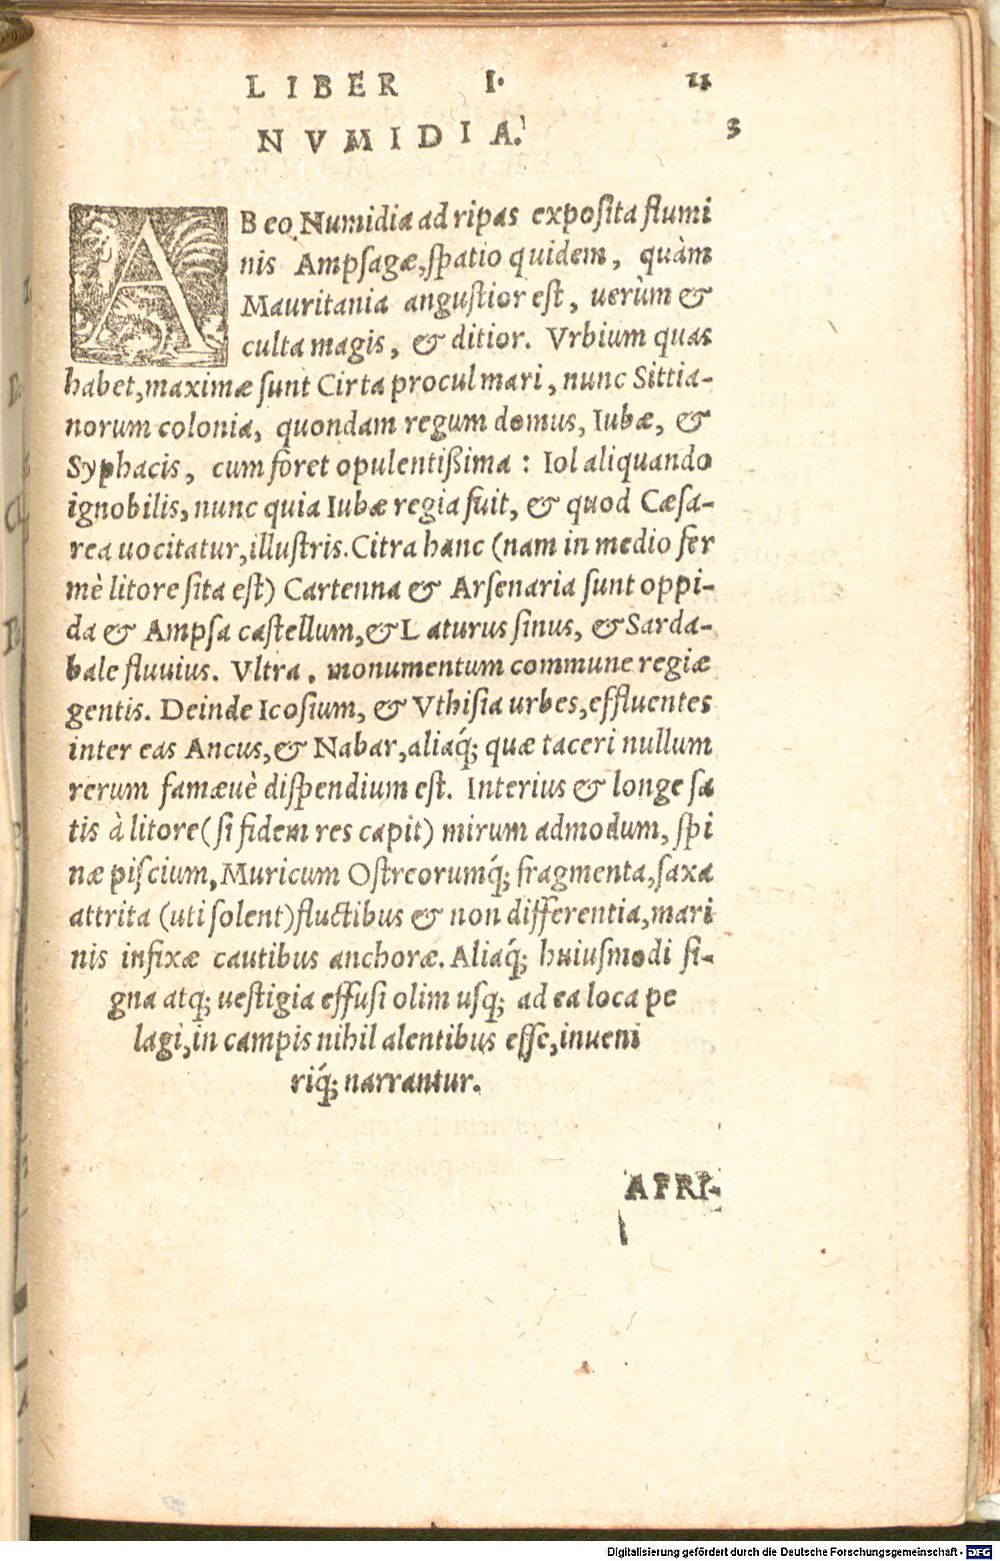 LIBER I. 11
NVMIDIA. 3
AB eo Numidia ad ripas exposita flumi
nis Ampsagæ, spatio quidem, quàm
Mauritania angustior est, uerùm &
culta magis, & ditior. Vrbium quas
habet, maximæ sunt Cirta procul mari, nunc Sittia-
norum colonia, quondam regum domus, Iubæ, &
Syphacis, cum foret opulentißima: Iol aliquando
ignobilis, nunc quia Iubæ regia fuit, & quod Cæsa-
rea uocitatur, illustris. Citra hanc (nam in medio fer
mè litore sita est) Cartenna & Arsenaria sunt oppi-
da & Ampsa castellum, & Laturus sinus, & Sarda-
bale fluuius. Vltra, monumentum commune regiæ
gentis. Deinde Icosium, & Vthisia urbes, effluentes
inter eas Ancus, & Nabar, aliaq́; quæ taceri nullum
rerum famæuè dispendium est. Interius & longe sa
tis à litore (si fidem res capit) mirum admodum, spi
næ piscium, Muricum Ostreorumq́; fragmenta, saxa
attrita (uti solent) fluctibus & non differentia, mari
nis infixæ cautibus anchoræ. Aliaq́; huiusmodi si-
gna atq; uestigia effusi olim usq; ad ea loca pe
lagi, in campis nihil alentibus esse, inueni
riq́; narrantur.
AFRI-
Digitalisierung gefördert durch die Deutsche Forschungsgemeinschaft - DFG